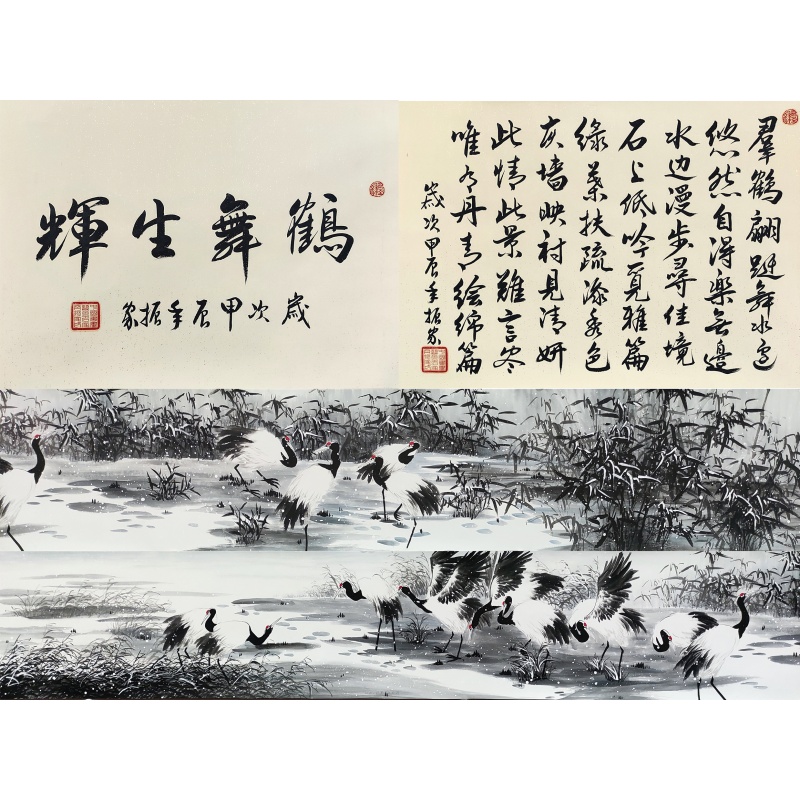 鶴舞生輝
歲次甲辰年振家
羣鶴翩跹舞水
悠然自得樂無邊
水边漫步尋佳境
石上低吟覓雅篇
綠葉扶疏添秀色
灰墙映衬見清妍
此情此景難言尽
唯有丹青绘绵篇
歲次甲辰年振家